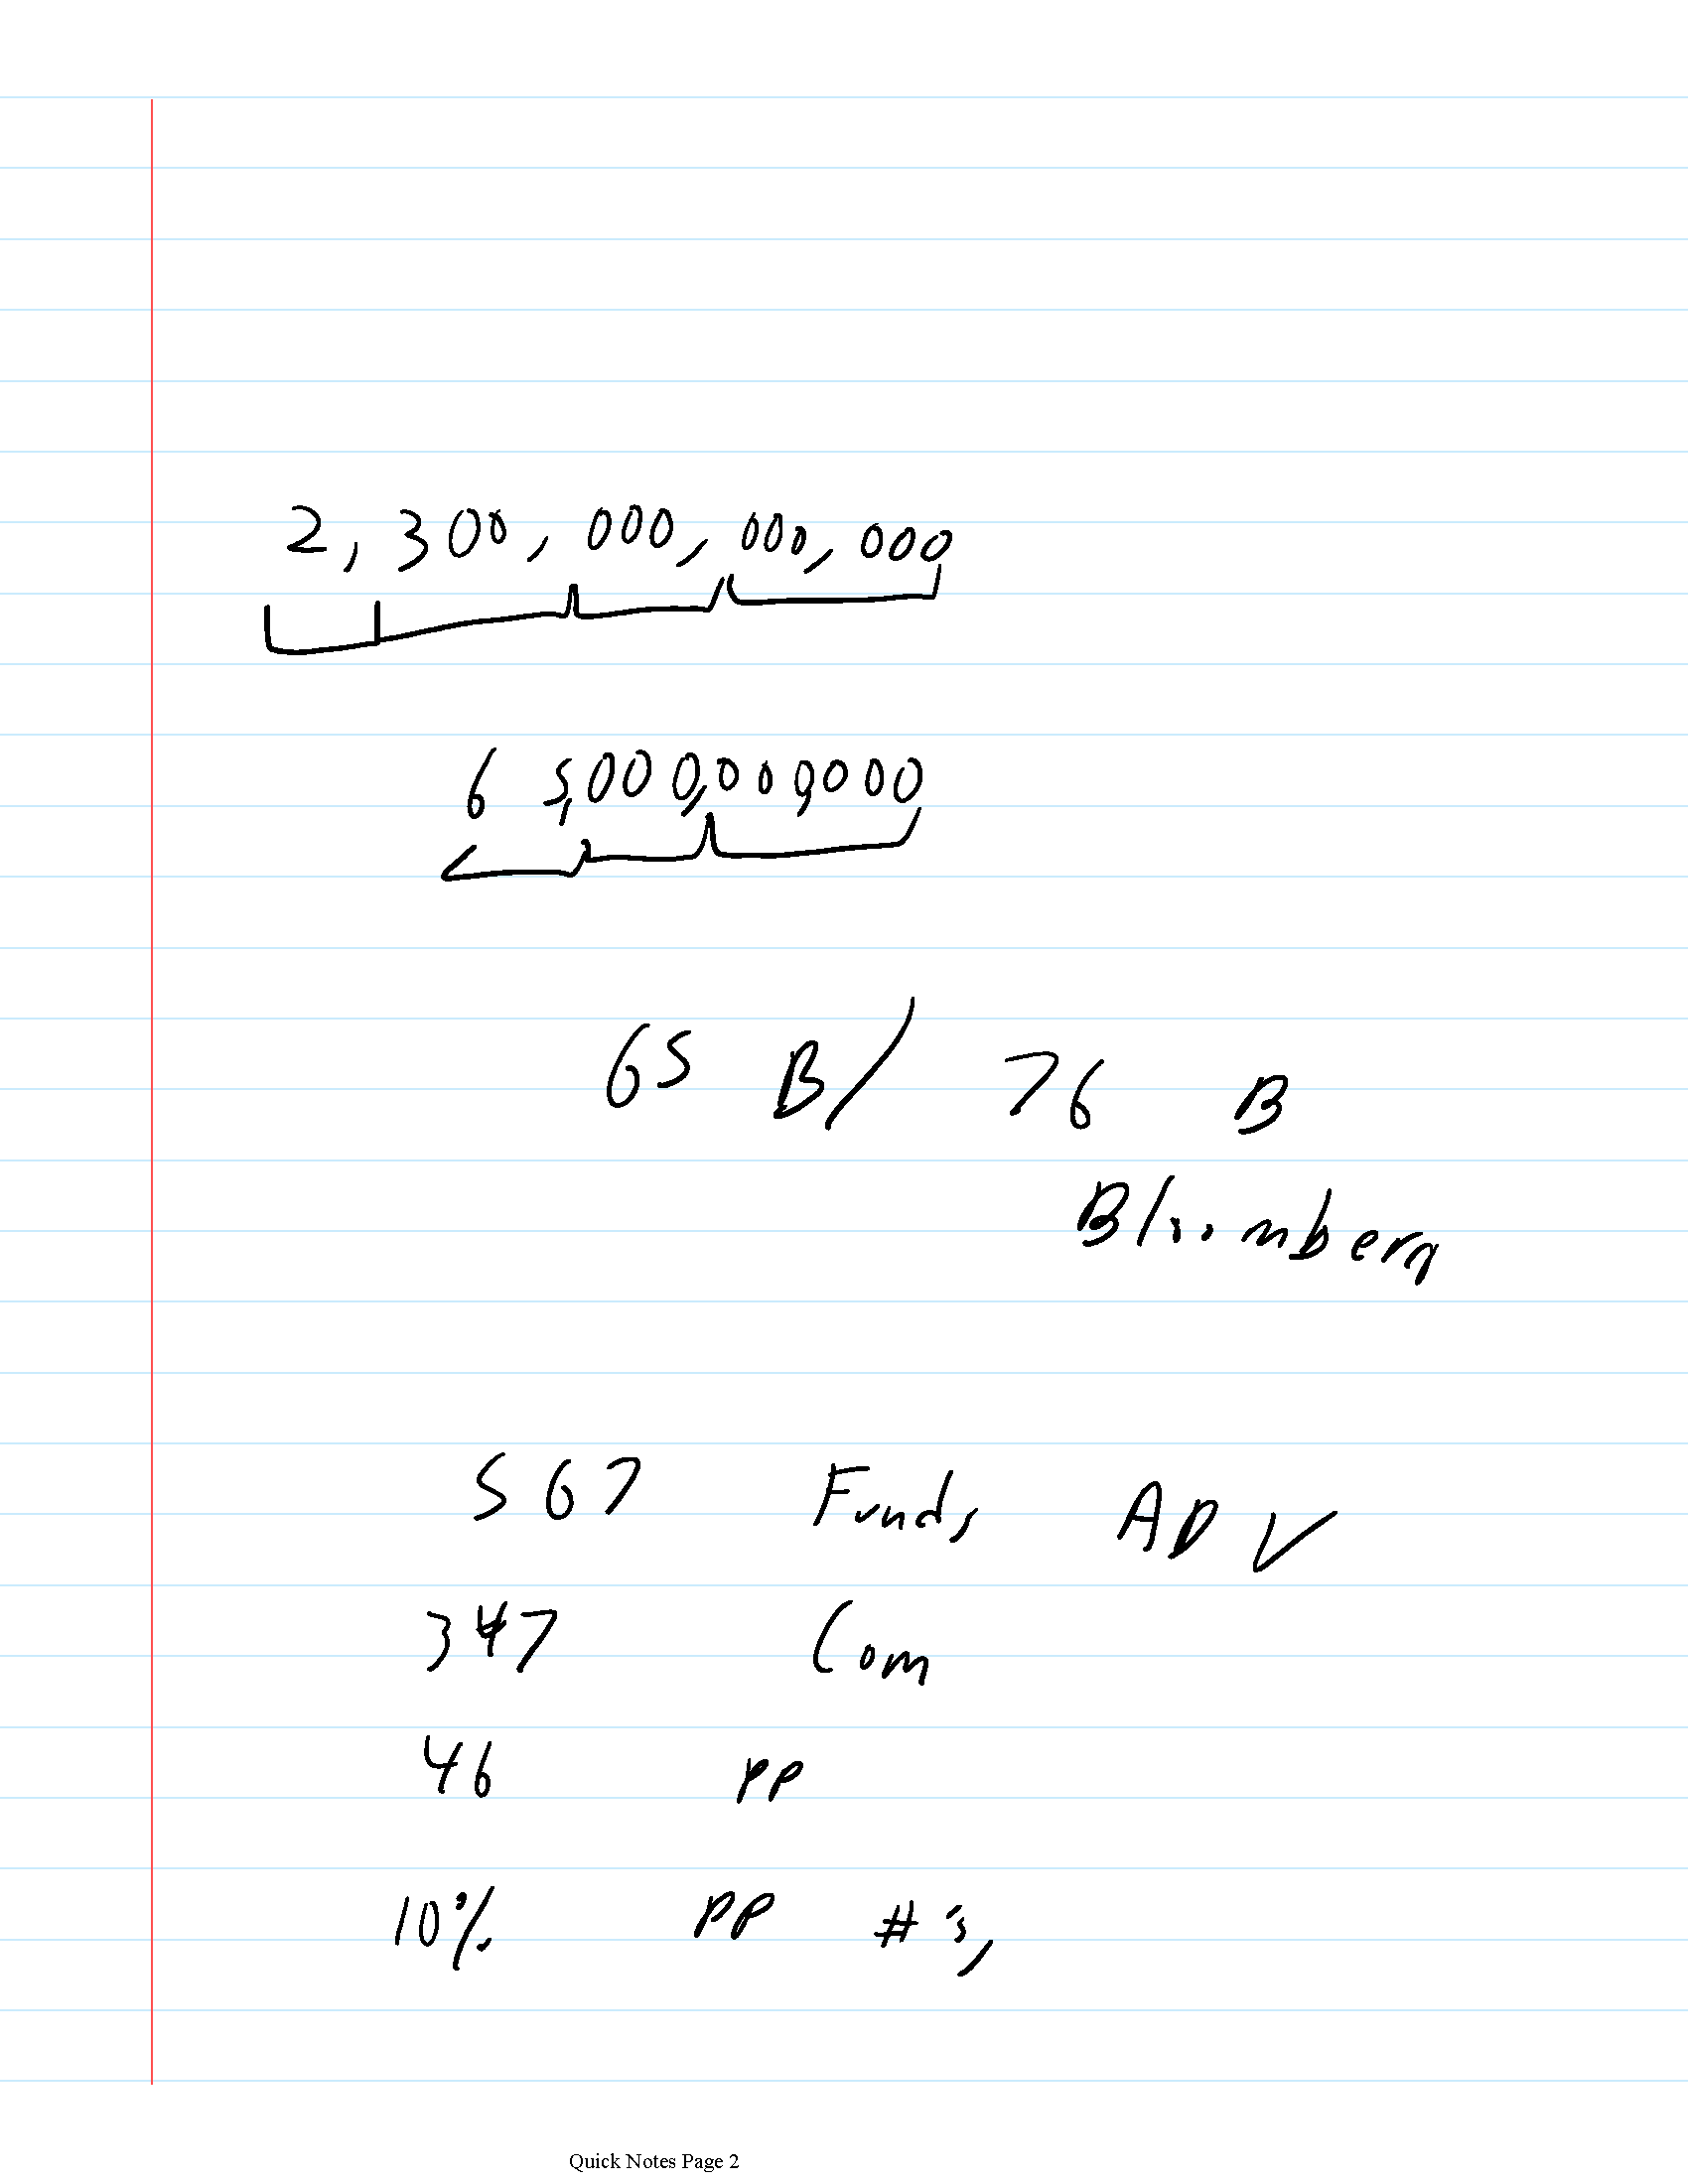 2,300,000,000,000
65,000,000,000
65 B/ 76 B
Bloomberg
567 Funds ADV
347 Com
46 PP
10% PP #'s,
Quick Notes Page 2